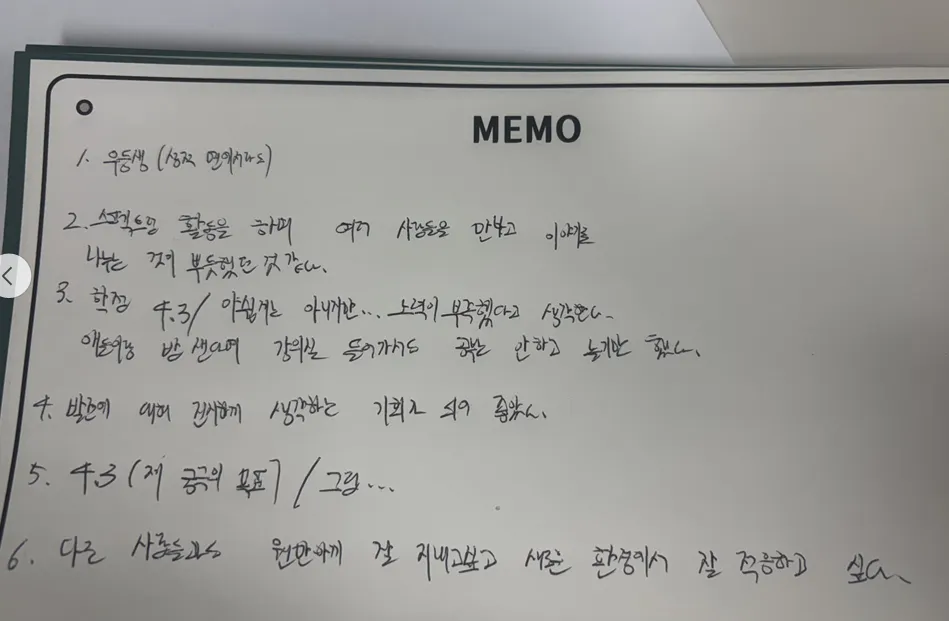 MEMO
1. 우등생 (성적
2. 활동을 하며 여러 사람들을 만나고 이야기를
나누는 것이 뿌듯했던 것 같다.
3. 학점 4.3 / 아쉽게는 아니지만... 노력이 부족했다고 생각한다.
밤 샌다며 강의실 들어가서도 공부는 안하고 놀기만 했다.
4. 발표에 대해 진지하게 생각하는 기회가 되어 좋았다.
5. 4.3 (제 궁극의 목표) / 그림...
6. 다른 사람들과도 원만하게 잘 지내고싶고 새로운 환경에서 잘 적응하고 싶다.